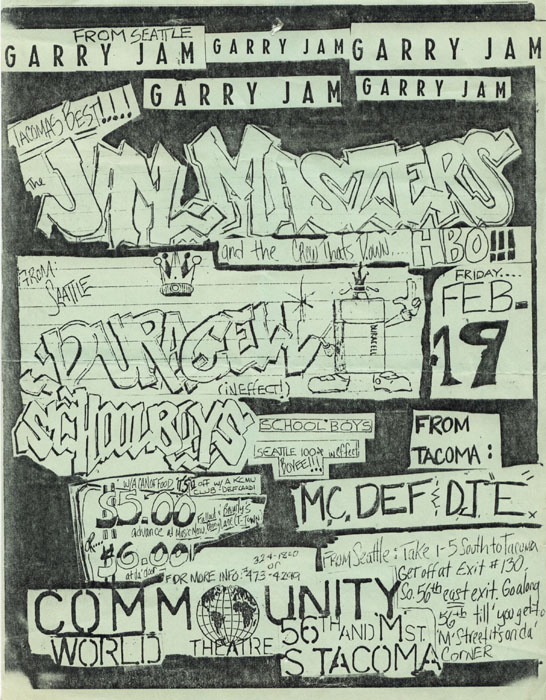 FROM SEATTLE
GARRY JAM GARRY JAM GARRY JAM
GARRY JAM GARRY JAM
TACOMAS BEST!!!!
The
JAM MASTERS
and the Crew Thats Down....
HBO!!!
FROM:
SEATTLE
FRIDAY....
FEB.
19
DURACELL
DURACELL
(iN EFFECT!)
SCHOOL BOYS
SCHOOL BOYS
SEATTLE 100%
BOYEE!!!
FROM
TACOMA:
M.C. DEF & D.J. E.
W/A CAN OF FOOD
OFF W/A KCMU
$5.00
advance at Music Now
OR...
$6.00
at da' door
324-1820
or
FOR MORE INFO: 473-4299
From Seattle: Take 1-5 South to Tacoma
Get off at Exit #130.
So. 56th east exit. Go along
56th till' you get to
'M' Street its on da'
CORNER
COMMUNITY
WORLD THEATRE
56TH AND M ST.
S TACOMA